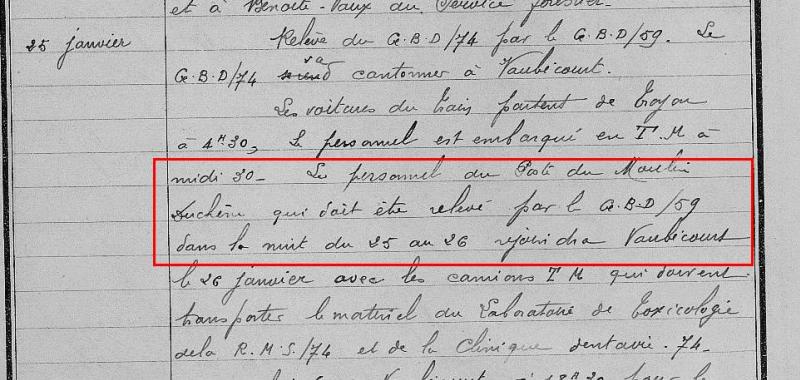 et à Benoite-Vaux du Service forestier.
25 janvier Relève du G.B.D/74 par le G.B.D/59. Le
G.B.D/74 va cantonner à Vaubécourt.
Les voitures du train partent de Troyon
à 4H30, Le personnel est embarqué en T.M à
midi 30- Le personnel du Poste du Moulin
Duchêne qui doit être relevé par le G.B.D/59
dans la nuit du 25 au 26 rejoindra Vaubécourt
le 26 janvier avec les camions T M qui doivent
transporter le matériel du Laboratoire de Toxicologie
de la R.M.S/74 et de la Clinique dentaire 74-
18H30 pour le